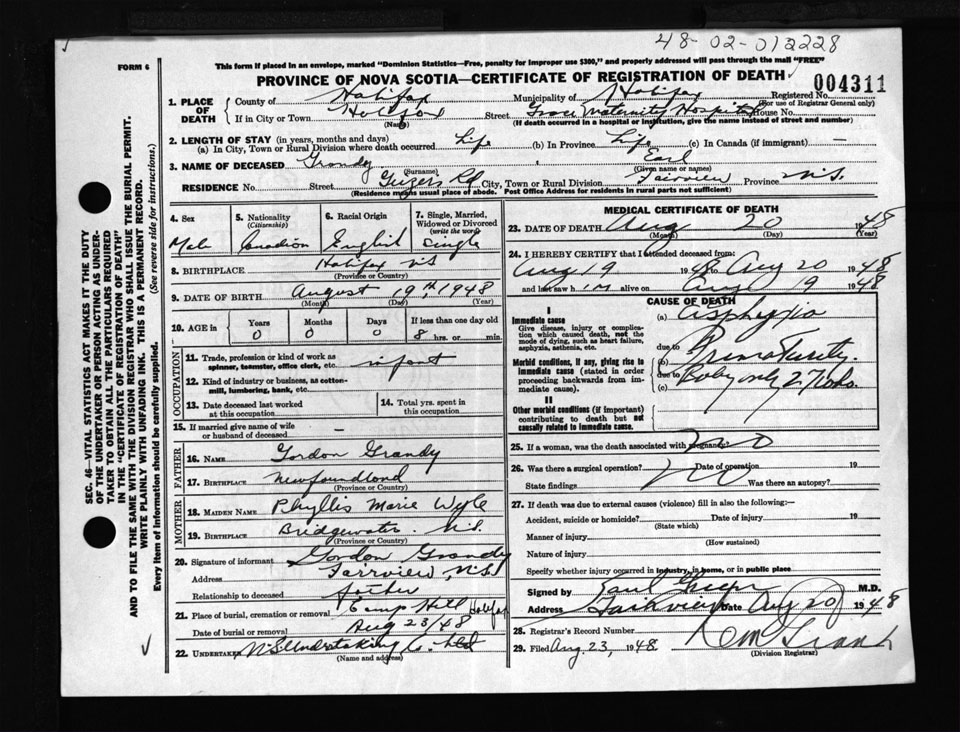 48-02-012228
FORM 6
This form if placed in an envelope, marked "Dominion Statistics—Free, penalty for improper use $300," and properly addressed will pass through the mail "FREE"
PROVINCE OF NOVA SCOTIA—CERTIFICATE OF REGISTRATION OF DEATH
004311
Registered No.
(For use of Registrar General only)
1. PLACE OF DEATH
County of Halifax Municipality of Halifax
If in City or Town Halifax Street Grace Maternity Hospital House No.
(Name) (If death occurred in a hospital or institution, give the name instead of street and number)
2. LENGTH OF STAY (in years, months and days)
(a) In City, Town or Rural Division where death occurred Life (b) In Province Life (c) In Canada (if immigrant) —
3. NAME OF DECEASED Grandy Earl
(Surname) (Given name or names)
RESIDENCE No. Street Geizers Rd City, Town or Rural Division Fairview Province N.S.
(Residence means usual place of abode. Post Office Address for residents in rural parts not sufficient)
4. Sex Male
5. Nationality (Citizenship) Canadian
6. Racial Origin English
7. Single, Married, Widowed or Divorced (write the word) Single
8. BIRTHPLACE Halifax NS
(Province or Country)
9. DATE OF BIRTH August 19th, 1948
(Month) (Day) (Year)
10. AGE in Years 0 Months 0 Days 0 If less than one day old 8 hrs. or min.
OCCUPATION
11. Trade, profession or kind of work as spinner, teamster, office clerk, etc. infant
12. Kind of industry or business, as cotton-mill, lumbering, bank, etc.
13. Date deceased last worked at this occupation
14. Total yrs. spent in this occupation
15. If married give name of wife or husband of deceased —
FATHER
16. NAME Gordon Grandy
17. BIRTHPLACE Newfoundland
(Province or Country)
MOTHER
18. MAIDEN NAME Phyllis Marie
19. BIRTHPLACE Bridgewater N.S.
(Province or Country)
20. Signature of informant Gordon Grandy
Address Fairview, N.S.
Relationship to deceased father
21. Place of burial, cremation or removal Camp Hill Halifax
Date of burial or removal Aug 23/48
22. UNDERTAKER N.S. Undertaking Co. Ltd
(Name and address)
MEDICAL CERTIFICATE OF DEATH
23. DATE OF DEATH Aug 20 1948
(Month) (Day) (Year)
24. I HEREBY CERTIFY that I attended deceased from:
Aug 19 1948 to Aug 20 1948
and last saw him alive on Aug 19 1948
CAUSE OF DEATH
I
Immediate cause
Give disease, injury or complication which caused death, not the mode of dying, such as heart failure, asphyxia, asthenia, etc.
(a) Asphyxia
due to
Morbid conditions, if any, giving rise to immediate cause (stated in order proceeding backwards from immediate cause).
(b) Prematurity.
due to
(c) Baby only 2
II
Other morbid conditions (if important) contributing to death but not causally related to immediate cause.
25. If a woman, was the death associated with pregnancy? no
26. Was there a surgical operation? no Date of operation 19
State findings Was there an autopsy?
27. If death was due to external causes (violence) fill in also the following:—
Accident, suicide or homicide? Date of injury 19
(State which)
Manner of injury
(How sustained)
Nature of injury
Specify whether injury occurred in industry, in home, or in public place
Signed by M.D.
Address Fairview Date Aug 20 1948
28. Registrar's Record Number
29. Filed Aug 23, 1948
(Division Registrar)
SEC. 46—VITAL STATISTICS ACT MAKES IT THE DUTY
OF THE UNDERTAKER OR PERSON ACTING AS UNDER-
TAKER TO OBTAIN ALL THE PARTICULARS REQUIRED
IN THE "CERTIFICATE OF REGISTRATION OF DEATH"
AND TO FILE THE SAME WITH THE DIVISION REGISTRAR WHO SHALL ISSUE THE BURIAL PERMIT.
WRITE PLAINLY WITH UNFADING INK. THIS IS A PERMANENT RECORD.
Every item of information should be carefully supplied. (See reverse side for instructions.)